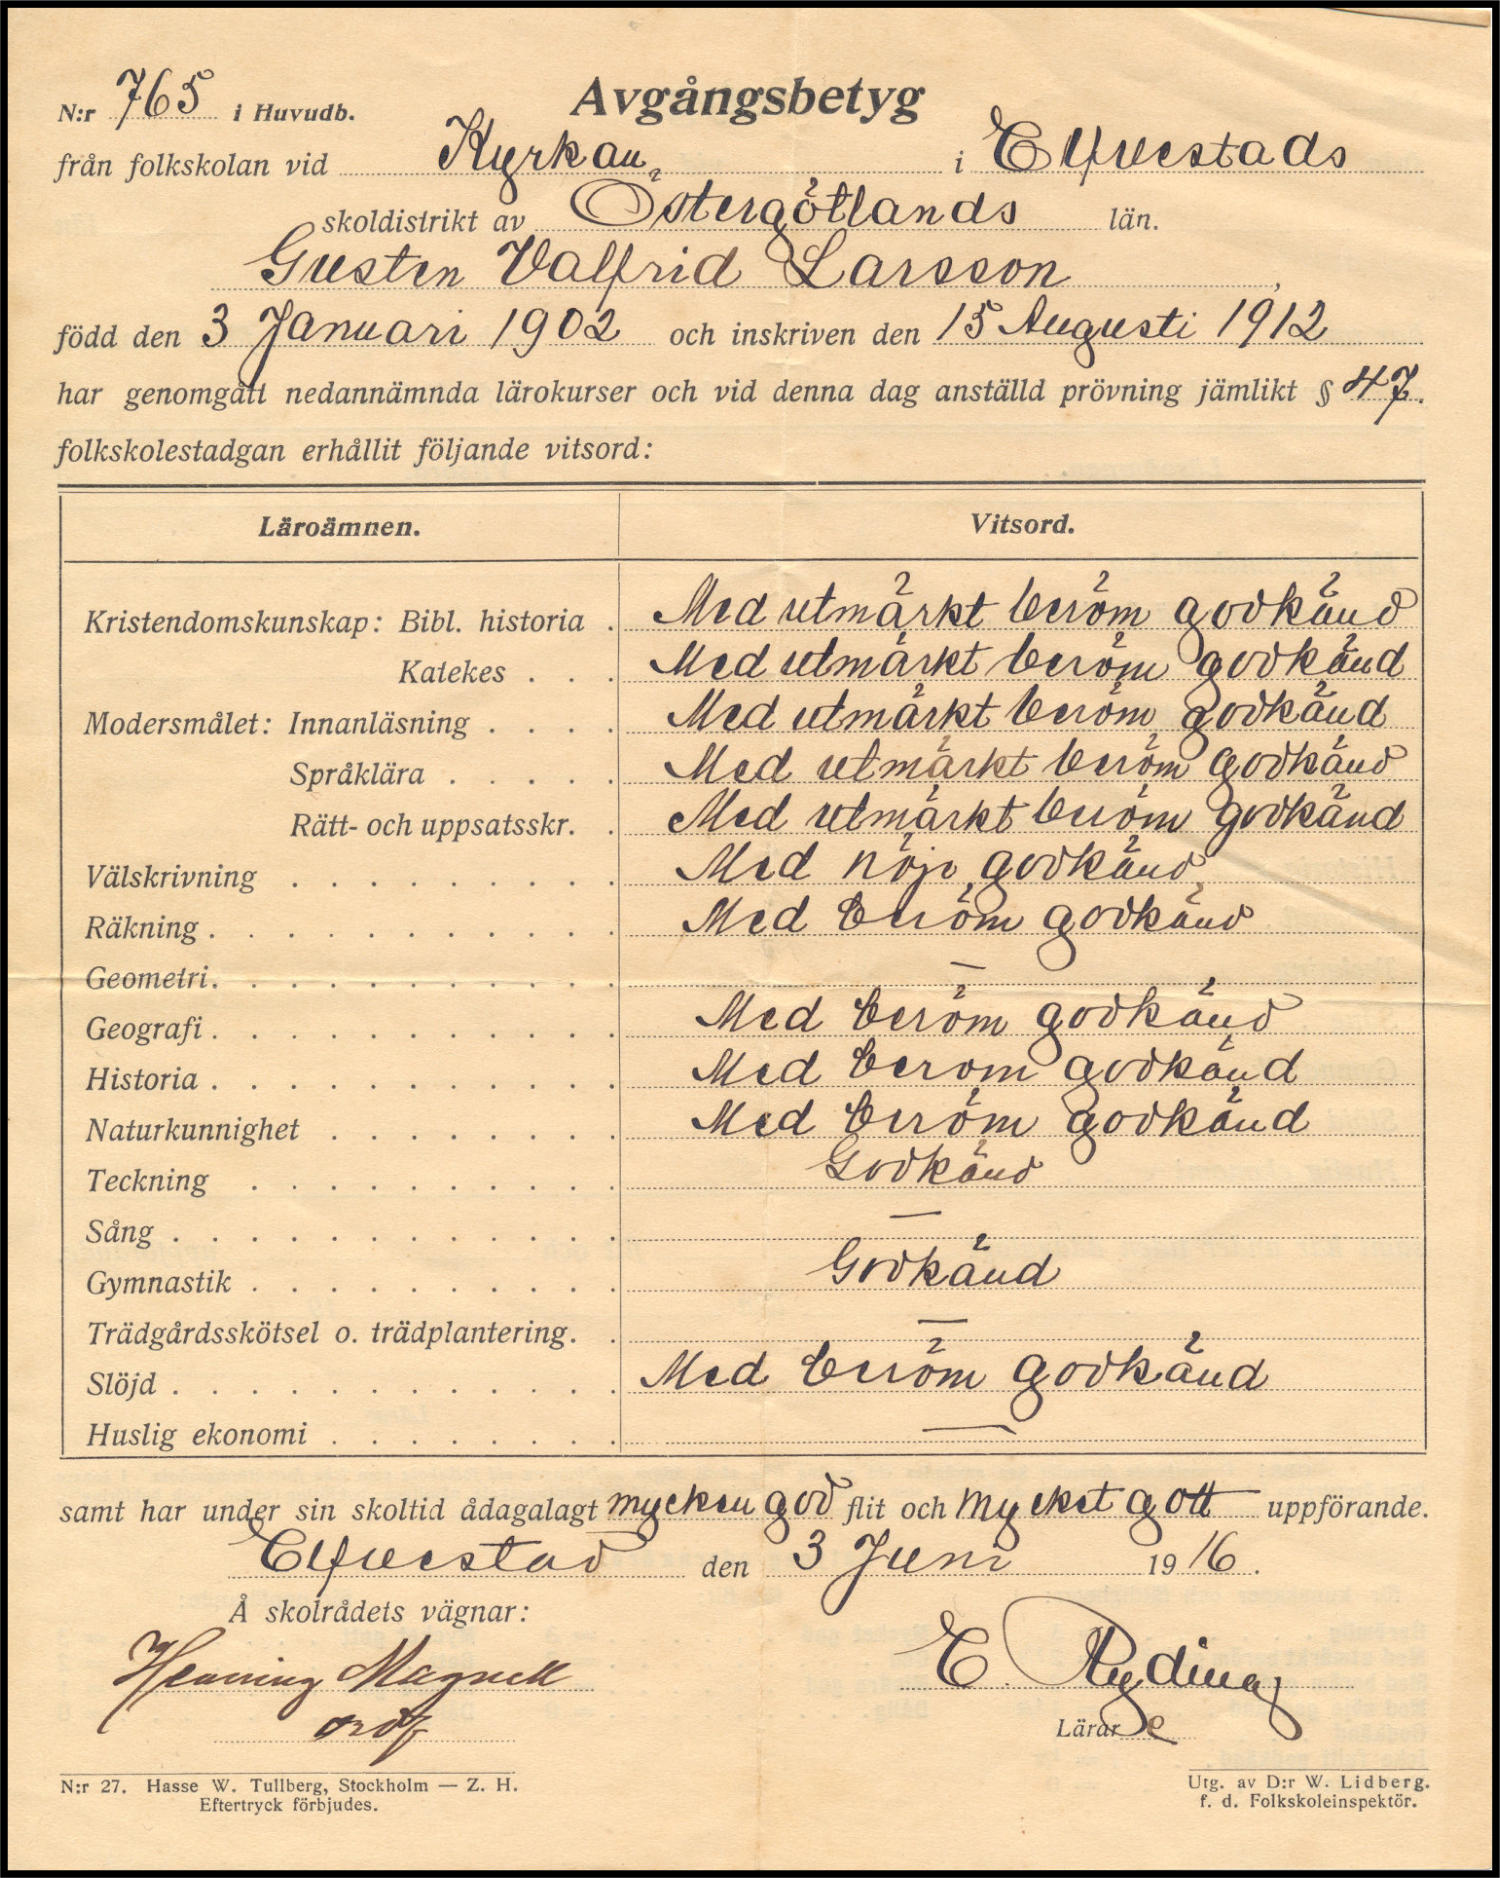 N:r 765 i Huvudb. Avgångsbetyg
från folkskolan vid Kyrkan, i Elfvestads
skoldistrikt av Östergötlands län.
Gusten Valfrid Larsson,
född den 3 Januari 1902 och inskriven den 15 Augusti 1912
har genomgått nedannämnda lärokurser och vid denna dag anställd prövning jämlikt § 47.
folkskolestadgan erhållit följande vitsord:
Läroämnen. Vitsord.
Kristendomskunskap: Bibl. historia . Med utmärkt beröm godkänd
Katekes . . . Med utmärkt beröm godkänd
Modersmålet: Innanläsning . . . . Med utmärkt beröm godkänd
Språklära . . . . . Med utmärkt beröm godkänd
Rätt- och uppsatsskr. . Med utmärkt beröm godkänd
Välskrivning . . . . . . . . . Med nöje godkänd
Räkning . . . . . . . . . . . Med beröm godkänd
Geometri. . . . . . . . . . . —
Geografi . . . . . . . . . . . Med beröm godkänd
Historia . . . . . . . . . . . Med berom godkänd
Naturkunnighet . . . . . . . . Med beröm godkänd
Teckning . . . . . . . . . . Godkänd
Sång . . . . . . . . . . . . —
Gymnastik . . . . . . . . . . Godkänd
Trädgårdsskötsel o. trädplantering. . —
Slöjd . . . . . . . . . . . . Med beröm godkänd
Huslig ekonomi . . . . . . . . —
samt har under sin skoltid ådagalagt mycken god flit och mycket gott uppförande.
Elfvestad den 3 Juni 1916.
Å skolrådets vägnar:
Henning Magnell E. Ryding
ordf
Lärare
N:r 27. Hasse W. Tullberg, Stockholm — Z. H. Utg. av D:r W. Lidberg.
Eftertryck förbjudes. f. d. Folkskoleinspektör.